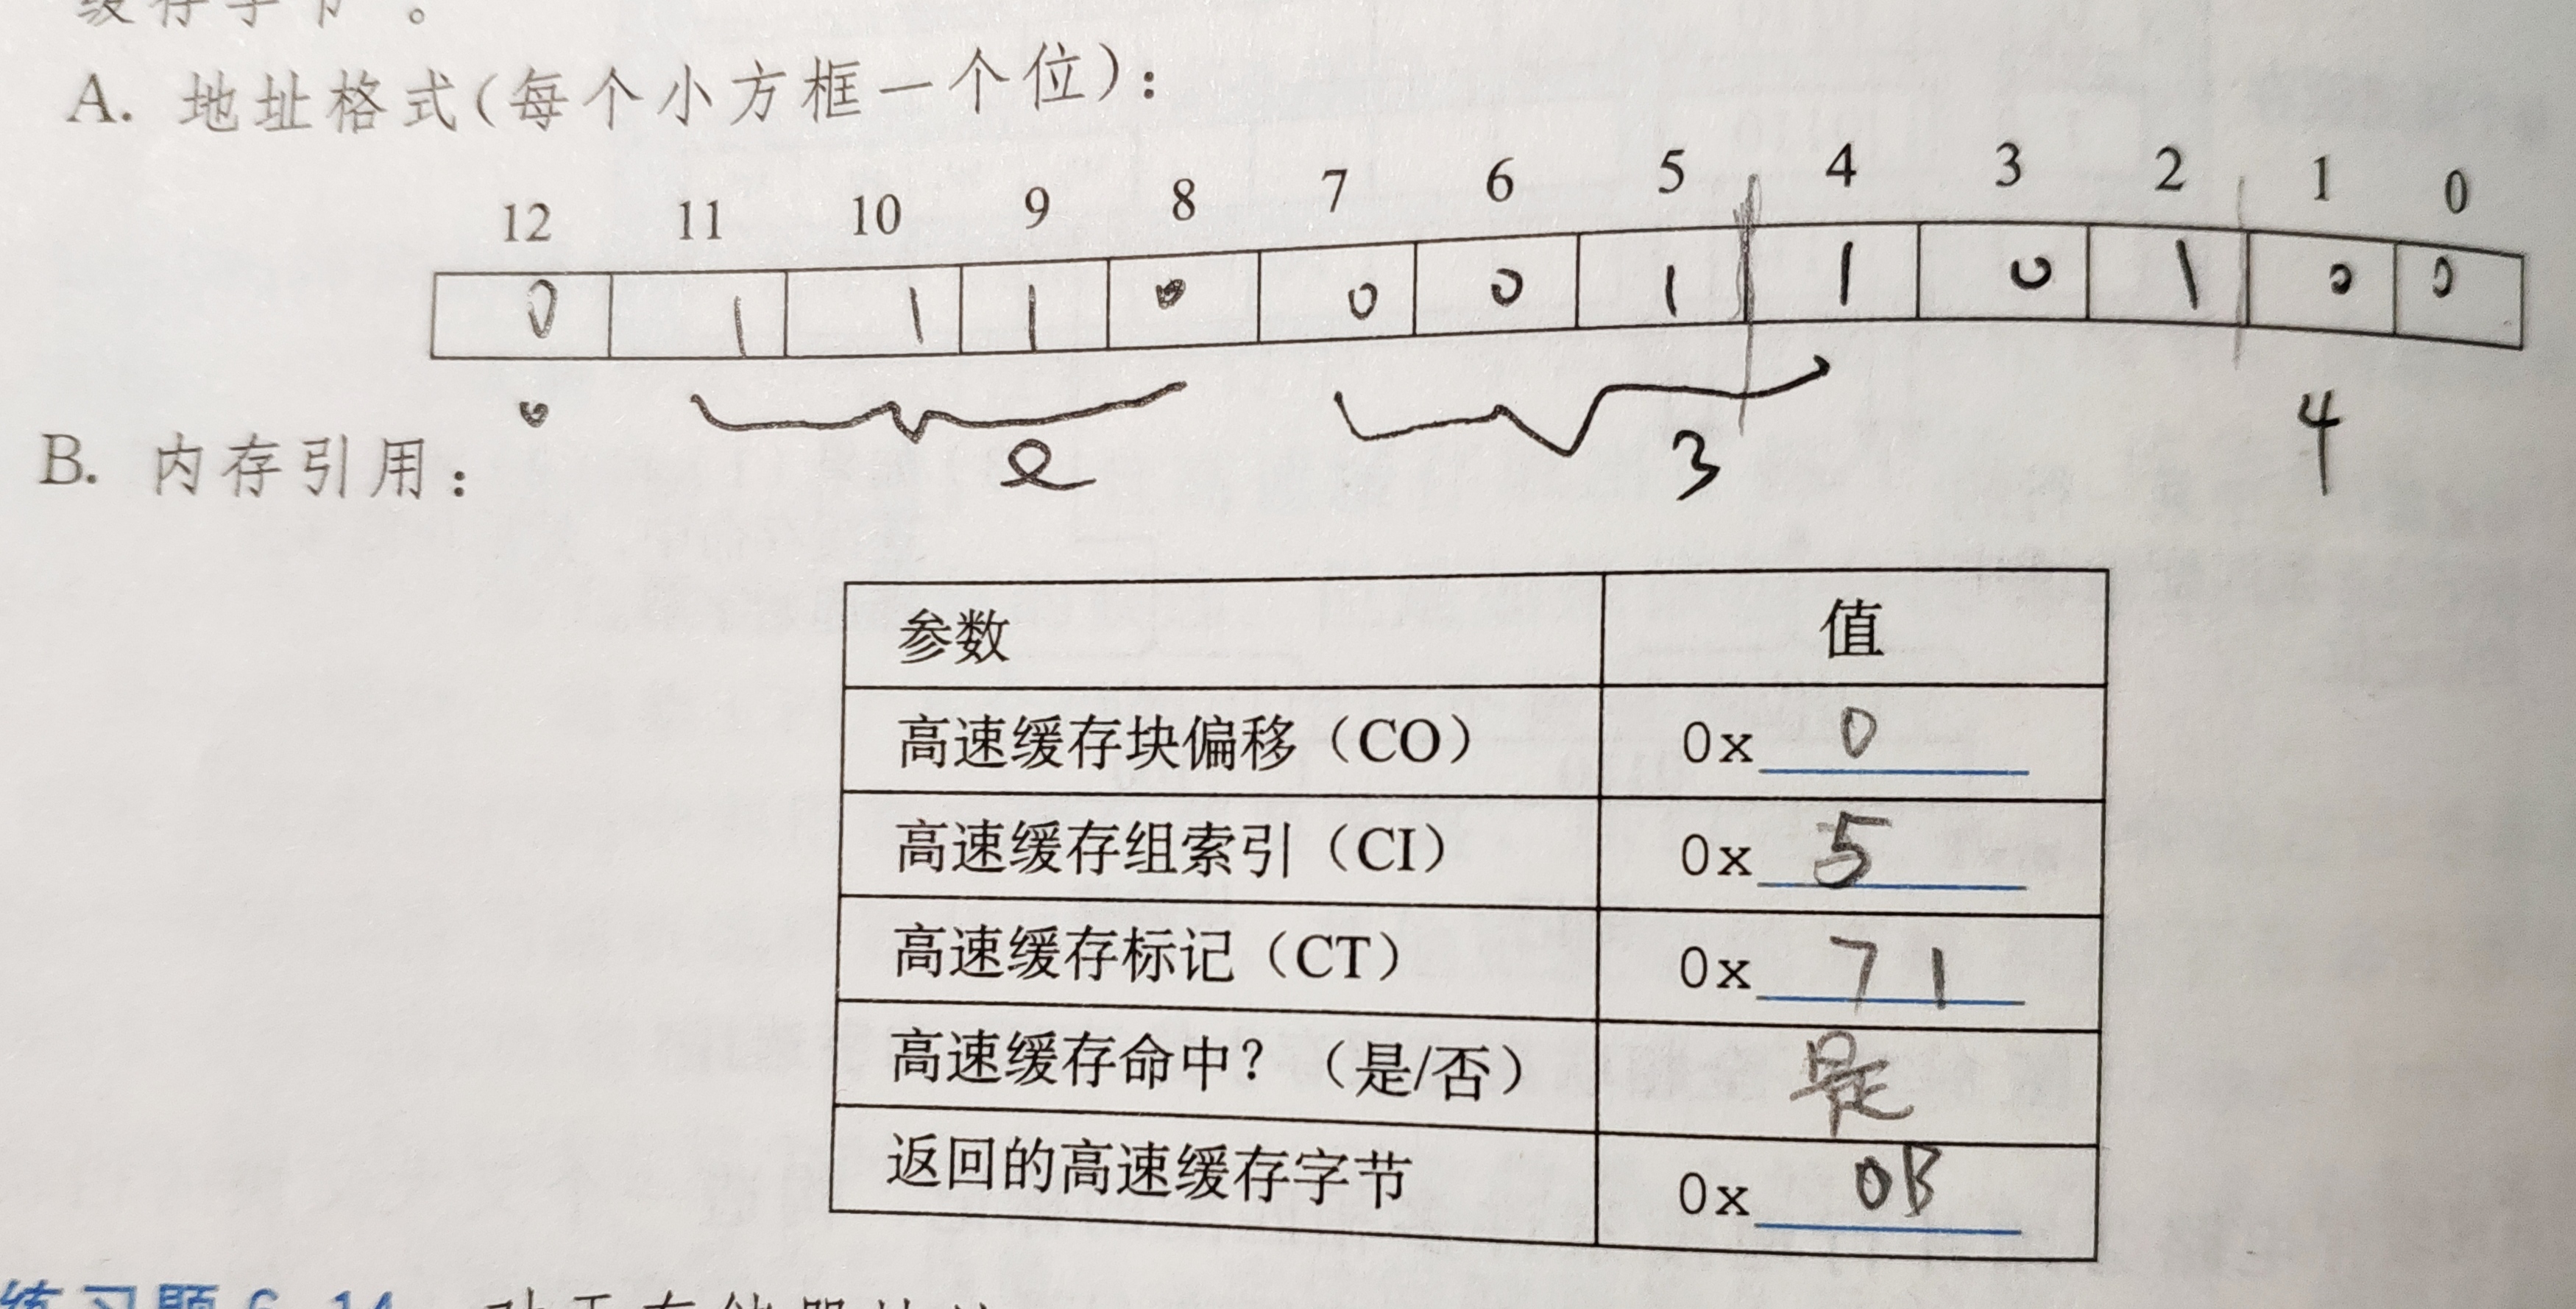 缓存字节。
A. 地址格式(每个小方框一个位)：
12 11 10 9 8 7 6 5 4 3 2 1 0
0 1 1 1 0 0 0 1 1 0 1 0 0
0 e 3 4
B. 内存引用：
参数 值
高速缓存块偏移（CO） 0x 0
高速缓存组索引（CI） 0x 5
高速缓存标记（CT） 0x 71
高速缓存命中？（是/否） 是
返回的高速缓存字节 0x 0B
练习题 6.14